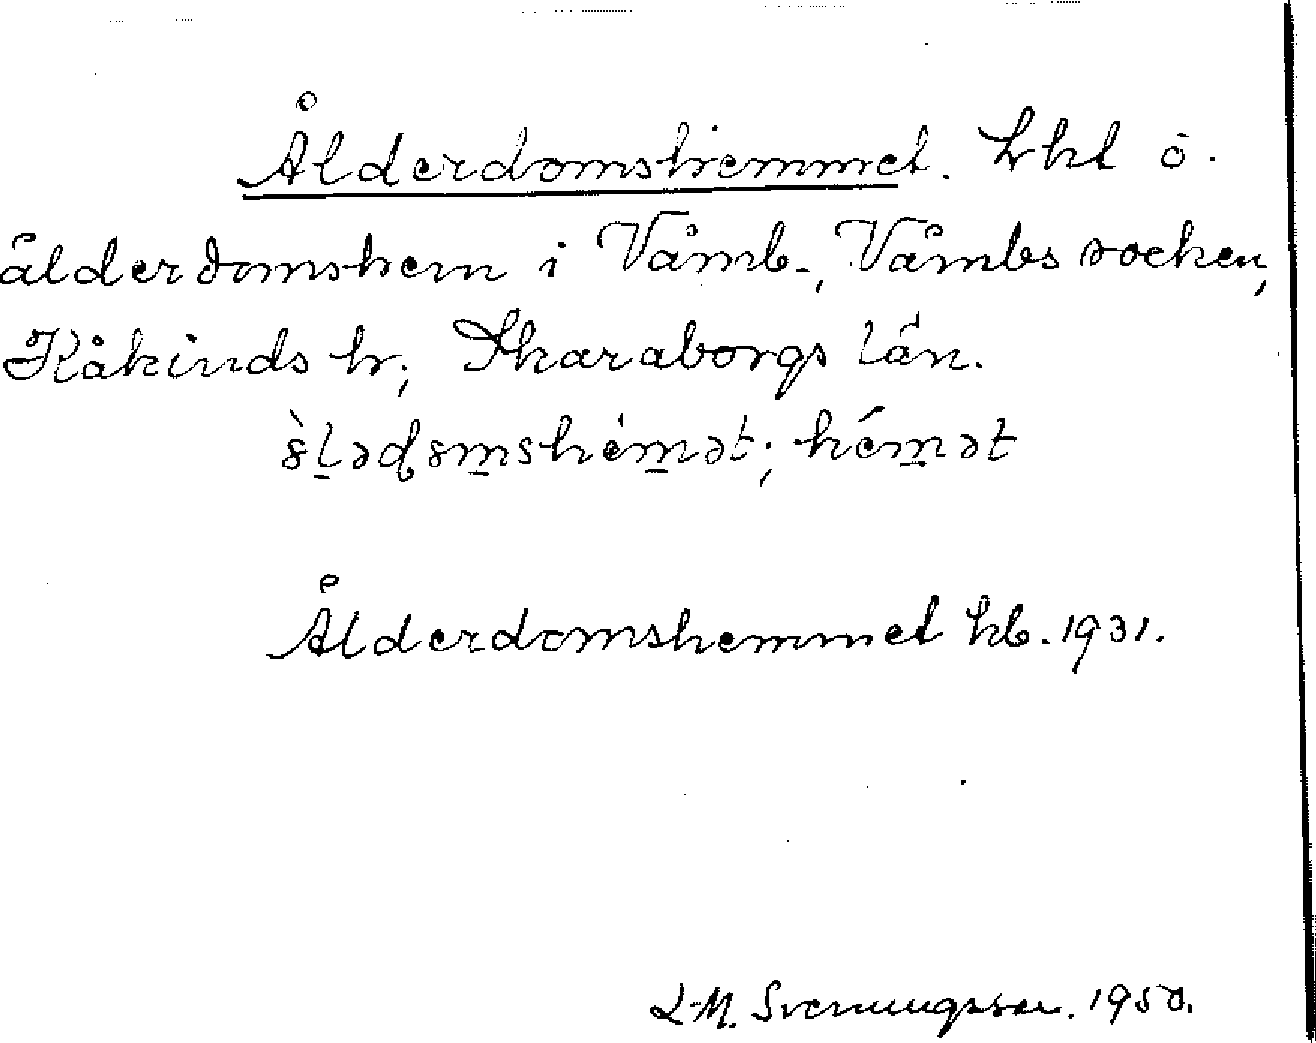 Ålderdomshemmet. Lht o.
ålderdomshem i Våmb, Våmbs socken,
Kåkinds hr, Skaraborgs län.
hémət
Ålderdomshemmet hb. 1931.
L-M. Svenungsson. 1950.